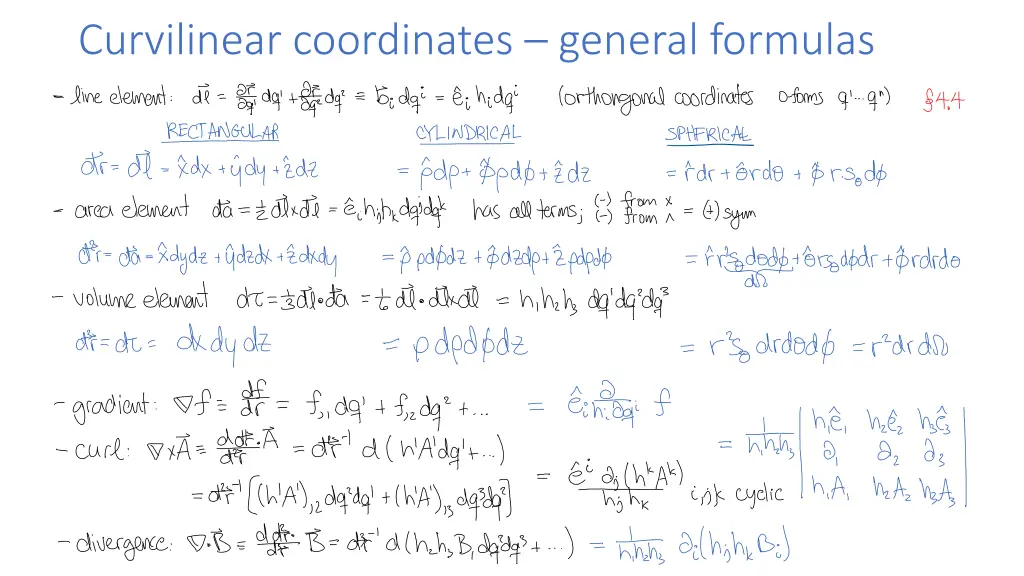 Curvilinear coordinates – general formulas
- line element: dl⃗ = ∂r⃗/∂q¹ dq¹ + ∂r⃗/∂q² dq² ≡ b⃗ᵢ dqⁱ = êᵢ hᵢ dqⁱ (orthongonal coordinates 0-forms q¹...qⁿ) §4.4
RECTANGULAR CYLINDRICAL SPHERICAL
dr⃗ = dl⃗ = x̂dx + ŷdy + ẑdz = ρ̂dρ + φ̂ρdφ + ẑdz = r̂dr + θ̂rdθ + φ̂ r·s_θ dφ
- area element da⃗ = ½ dl⃗×dl⃗ = êᵢ hⱼhₖ dqʲdqᵏ has all terms; (-) from x (-) from ∧ = (+) sym
d²r⃗ = da⃗ = x̂dydz + ŷdzdx + ẑdxdy = ρ̂ ρdφdz + φ̂dzdρ + ẑρdρdφ = r̂r²s_θ dθdφ + θ̂rs_θ dφdr + φ̂rdrdθ
dΩ
- volume element dτ = ⅓dl⃗·da⃗ = ⅙ dl⃗·dl⃗×dl⃗ = h₁h₂h₃ dq¹dq²dq³
d³r = dτ = dxdydz = ρdρdφdz = r²s_θ drdθdφ = r²drdΩ
- gradient: ∇f ≡ df/dr⃗ = f,₁dq¹ + f,₂dq² + ... = êᵢ ∂/hᵢ∂qⁱ f
- curl: ∇×A⃗ ≡ d dr⃗·A⃗/d²r⃗ = d²r⃗⁻¹ d(h¹A¹dq¹+...) = 1/h₁h₂h₃ | h₁ê₁ h₂ê₂ h₃ê₃ | ∂₁ ∂₂ ∂₃ | h₁A₁ h₂A₂ h₃A₃ |
= d²r⃗⁻¹[(h¹A¹),₂ dq²dq¹ + (h¹A¹),₃ dq³dq¹] = êⁱ ∂ⱼ(hᵏAᵏ)/hⱼhₖ i,j,k cyclic
- divergence: ∇·B⃗ ≡ d d²r⃗·/d³r B⃗ = d³r⁻¹ d(h₂h₃B₁dq²dq³+...) = 1/h₁h₂h₃ ∂ᵢ(hⱼhₖBᵢ)